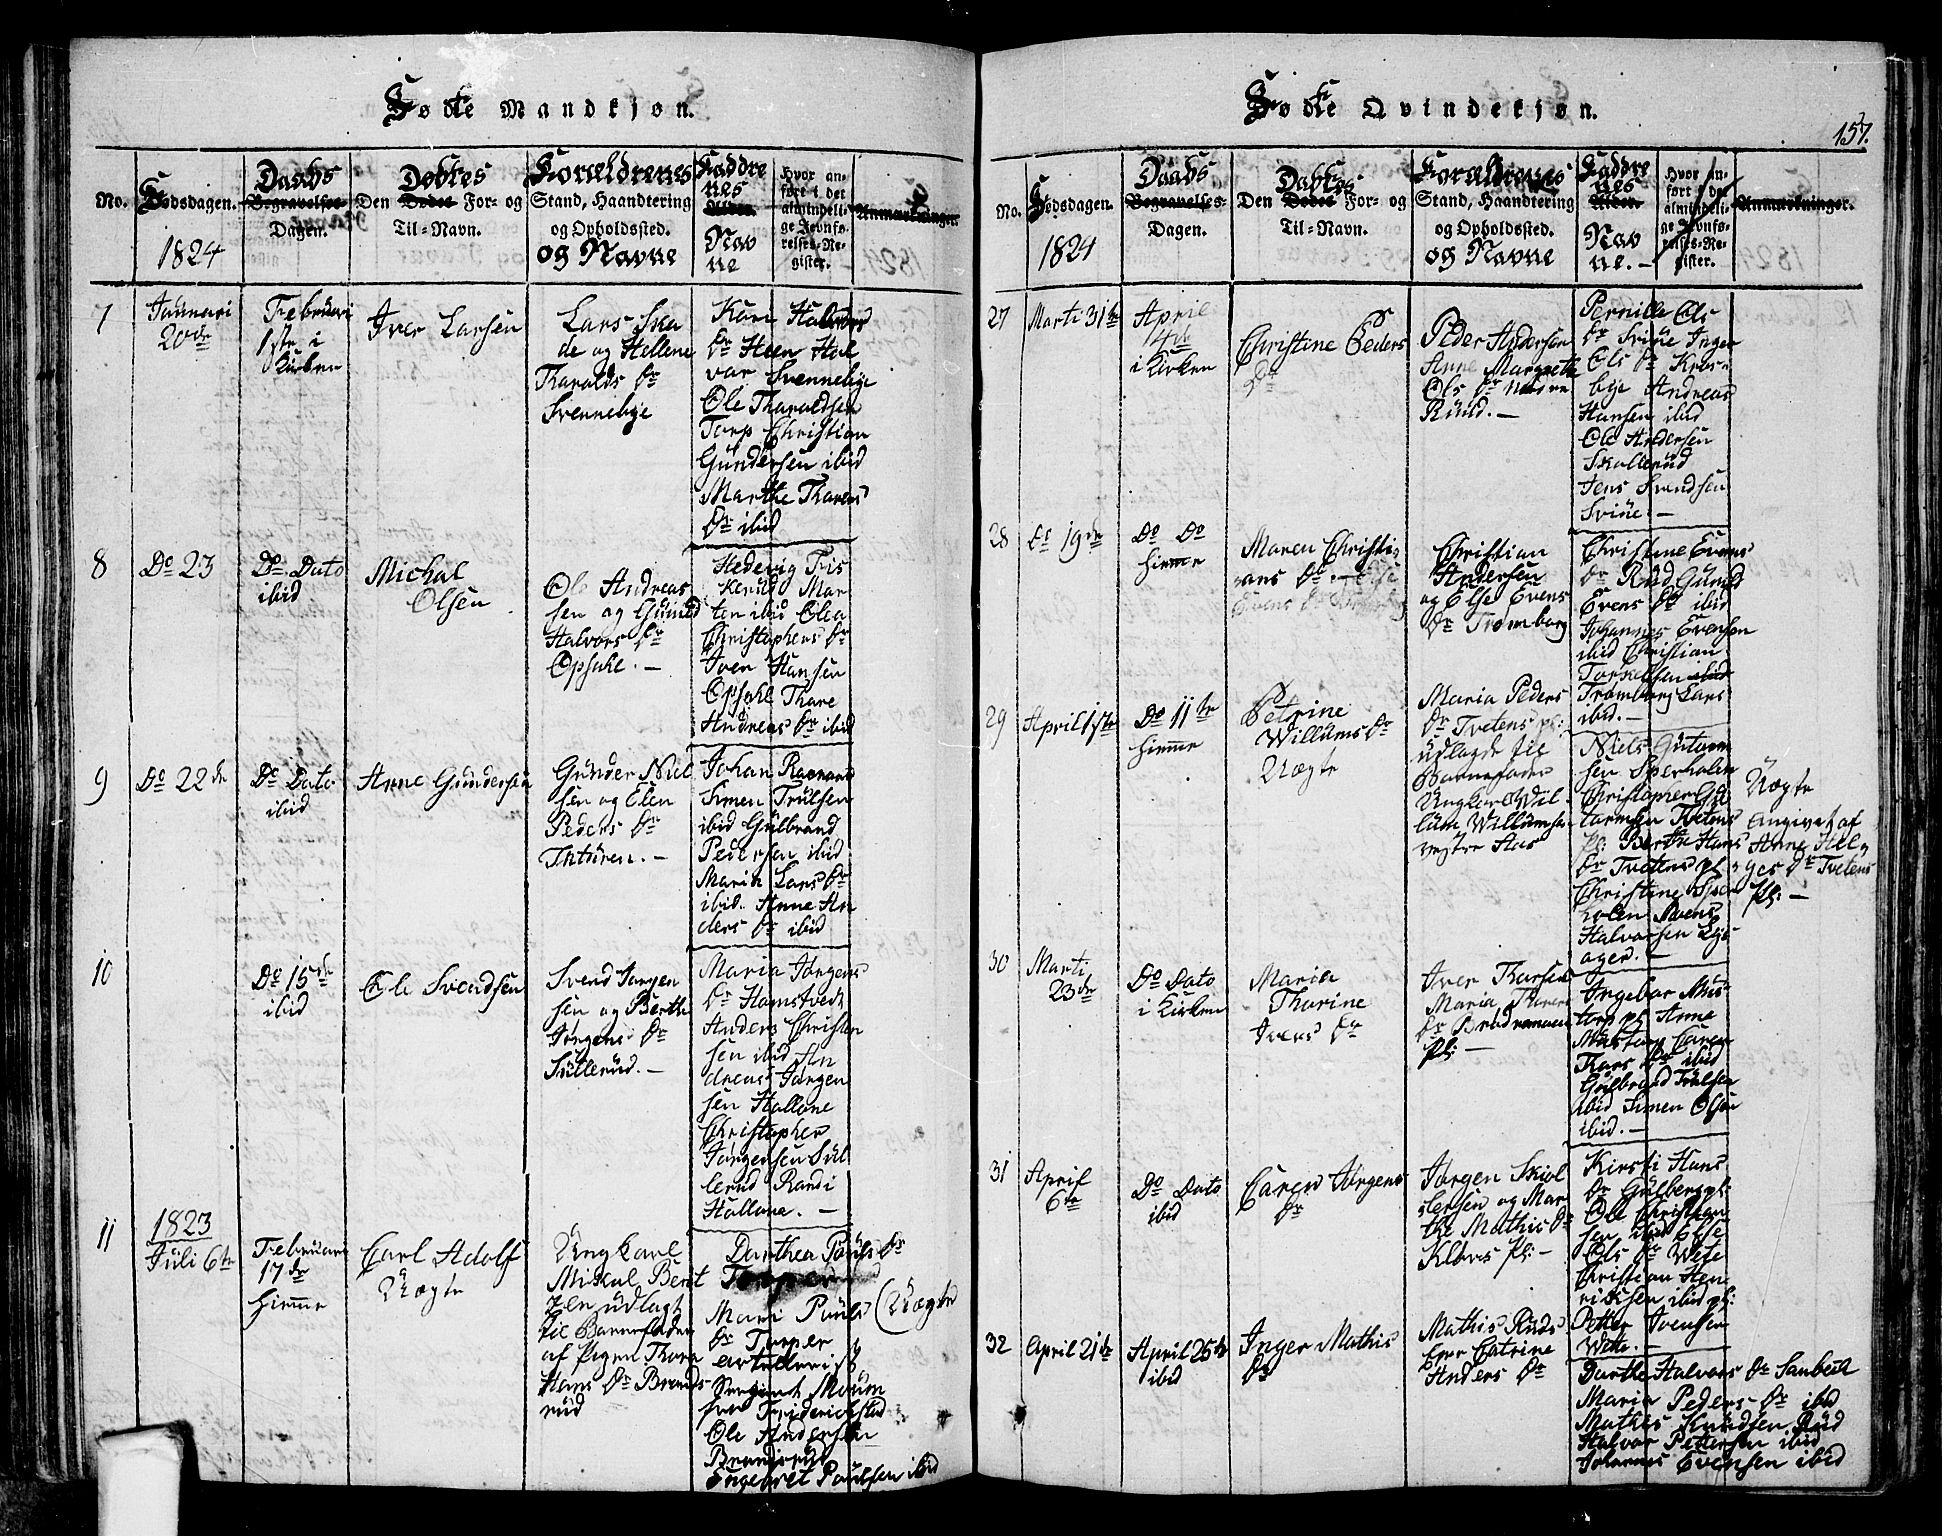 Fødte Mandkjøn.
No.
Fødsdagen.
1824
Daabs
Begravelses-
Dagen.
Døbtes
Den Dødes For- og
Til-Navn.
Forældrenes
Stand, Haandtering
og Opholdssted.
og Navne
Faddre
nes
Alder.
Nav
ne
Hvor an-
ført i det
almindeli-
ge Jevnfø-
relses-Re-
gister.
Anmærkninger.
7
Januari
20de
Februari
1ste i
Kirken
Iver Larsen
Lars Ska
de og Hellene
Haralds Dr
Svennebye
Kari Halvors
Dr Heen Hal
var Svennebye
Ole Tharaldsen
Torp Christian
Gundersen ibid
Marthe Thores
Dr ibid
8
Do 23
Do Dato
ibid
Michal
Olsen
Ole Andreas
sen og Gunild
Halvors Dr
Opsahl. -
Hedevig Fris
kerud Mar
ten ibid Olea
Christophers Dr
Iver Hansen
Opsahl Thare
Andreas Dr ibid
9
Do 22de
Do Dato
ibid
Arne Gundersen
Gunder Niel
sen og Elen
Peders Dr
Inturen. -
Johan
Simen Trulsen
ibid Gulbrand
Pedersen ibid
Maria Lars Dr
ibid. Anne An
ders Dr ibid
10
Do 15de
ibid
Ole Svendsen
Svend Jørgen
sen og Berthe
Jørgens Dr
Sullerud. -
Maria Jørgens
Dr Hamstvedt
Anders Christen
sen ibid An
dreas Jørgen
sen Hallane
Christopher
Jørgensen Sul
lerud Randi
Hallane. -
11
1823
Juli 6te
Februari
17de
hiemme
Carl Adolf
Uægte
Ungkarl
Mikkal Bent
zen udlagt
til Barnefader
af Pigen Thora
Hans Dr Brands
rud
Dorthea Pouls Dr
Torper
Mari Pouls
Dr Torper
artellerist
Sergiant Moum
fra Friderichstad
Ole Andersen
Brandsrud
Ingebret Poulsen ibid
(Uægte
Fødte Qvindekjøn.
157.
No.
Fødsdagen.
1824
Daabs
Begravelses-
Dagen.
Døbtes
Den Dødes For- og
Til-Navn.
Forældrenes
Stand, Haandtering
og Opholdssted.
og Navne
Faddre
nes
Alder.
Nav
ne. -
Hvor an-
ført i det
almindeli-
ge Jevnfø-
relses-Re-
gister.
Anmærkninger.
27
Marti 31te
April
14de
i Kirken
Christine Peders
Dr
Peder Andersen
Anne Margrethe
Ols Dr nedre
Ruud. -
Pernille Ols
Dr Svine Inger
Ols Dr Kros-
bye Andreas
Hansen ibid
Ole Andersen
Skallerud
Jens Svendsen
Svine. -
28
Do 19de
Do Do
hiemme
Maren Christi
ans Dr. -
Christian
Andersen
og Else Evens
Dr Tromborg
Christine Evens
Dr Rud Gunild
Evens Dr ibid
Johannes Evensen
ibid Christian
Torkelsen ibid
Tromborg Lars
ibid. -
29
April 1ste
Do 11te
hiemme
Petrine
Willums Dr
Uægte
Maria Peders
Dr Tvetens pl:
udlagde til
Barnefader
Ungkarl Wil
lum Willumsen
vestre Has
Niels Gutorm
sen Sperholen
Christopher Gut
tormsen Tvetens
pl: Berthe Hans
Dr Tvetens pl
Christine Sper
holen Svens
Halvorsen Lys
ager. -
Uægte
Angivet af
Anne Hel-
ges Dr Tvetens
Pl: -
30
Marti
23de
Do Dato
i Kirken
Maria
Thorine
Ivers Dr
Iver Thorsen
Maria Thores
Dr
pl: -
Ingebor Mus-
torp pl Anne
Mustorp Caren
Thors Dr ibid
Gulbrand Trulsen
ibid Simen Olsen
ibid. -
31
April
6te
Do Dato
ibid
Caren Jørgens
Dr
Jørgen Skiol
lersen og Mar
the Mathis Dr
Kloves Pl: -
Kirsti Hans
Dr Gulbergpl:
Ole Christian
sen ibid Else
Ols Dr Wete
Christian Hen
richsen ibid pl:
Petter Ivensen
Wette. -
32
April 21de
April 25te
ibid
Inger Mathis
Dr
Mathis Ruds
Eier Catrine
Anders Dr
Dorthe Halvors Dr
Maria Peders Dr ibid
Mathis Knudsen Rud
Halvor Pettersen ibid
Johannes Evensen ibid